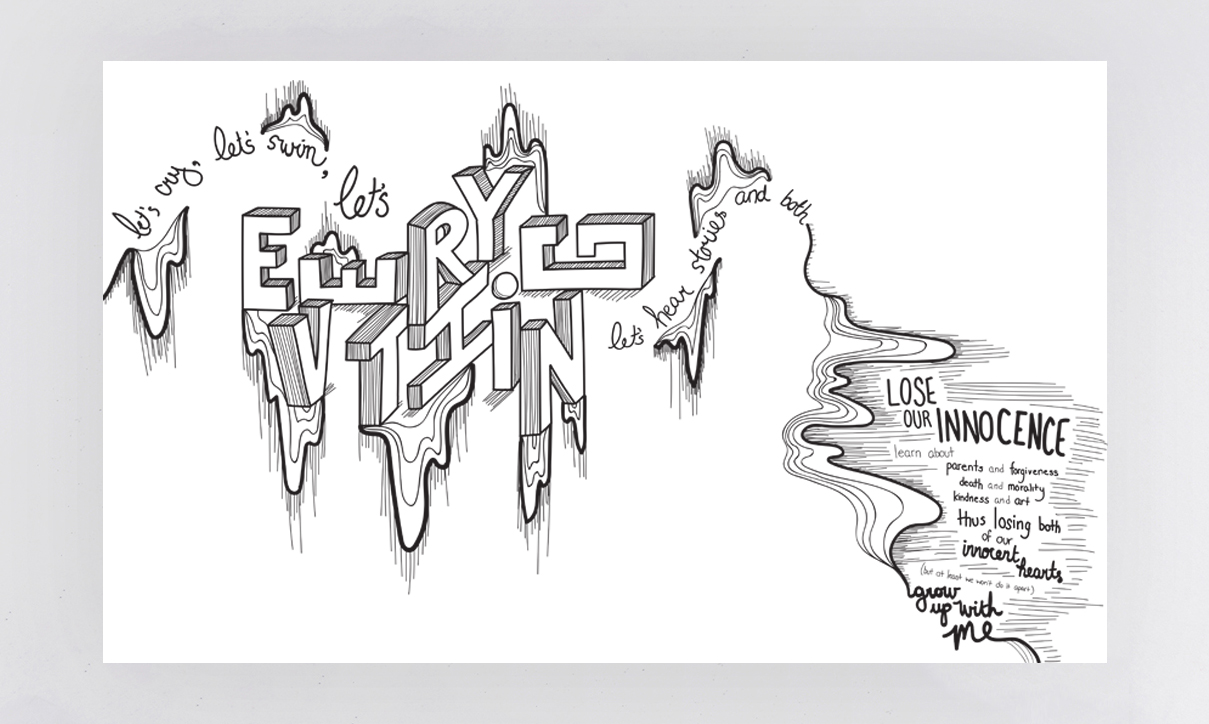 let's cry,
let's swim,
let's
EVERYTHING
let's hear stories and both
LOSE
OUR INNOCENCE
learn about
parents and forgiveness
death and morality
kindness and art
thus losing both
of our
innocent
hearts
(but at least we won't do it apart)
grow
up with
me